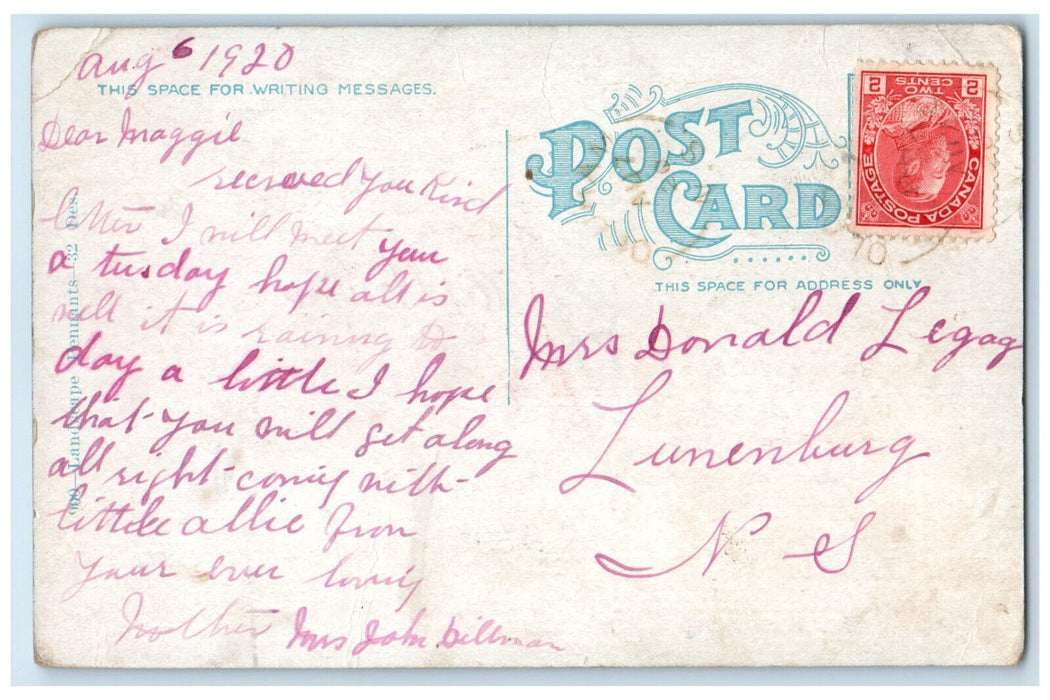 Aug 6 1920
THIS SPACE FOR WRITING MESSAGES.
Dear Maggie
recived you Kind
letter I will meet you
a tusday hope all is
well it is raining to
day a little I hope
that you will get along
all right coming with
little allie from
your ever loving
Mother Mrs John Dillman
900—Landscape Pennants—32 Des.
POST CARD
THIS SPACE FOR ADDRESS ONLY
Mrs Donald Legag
Lunenburg
N S
CANADA POSTAGE
2 TWO CENTS 2